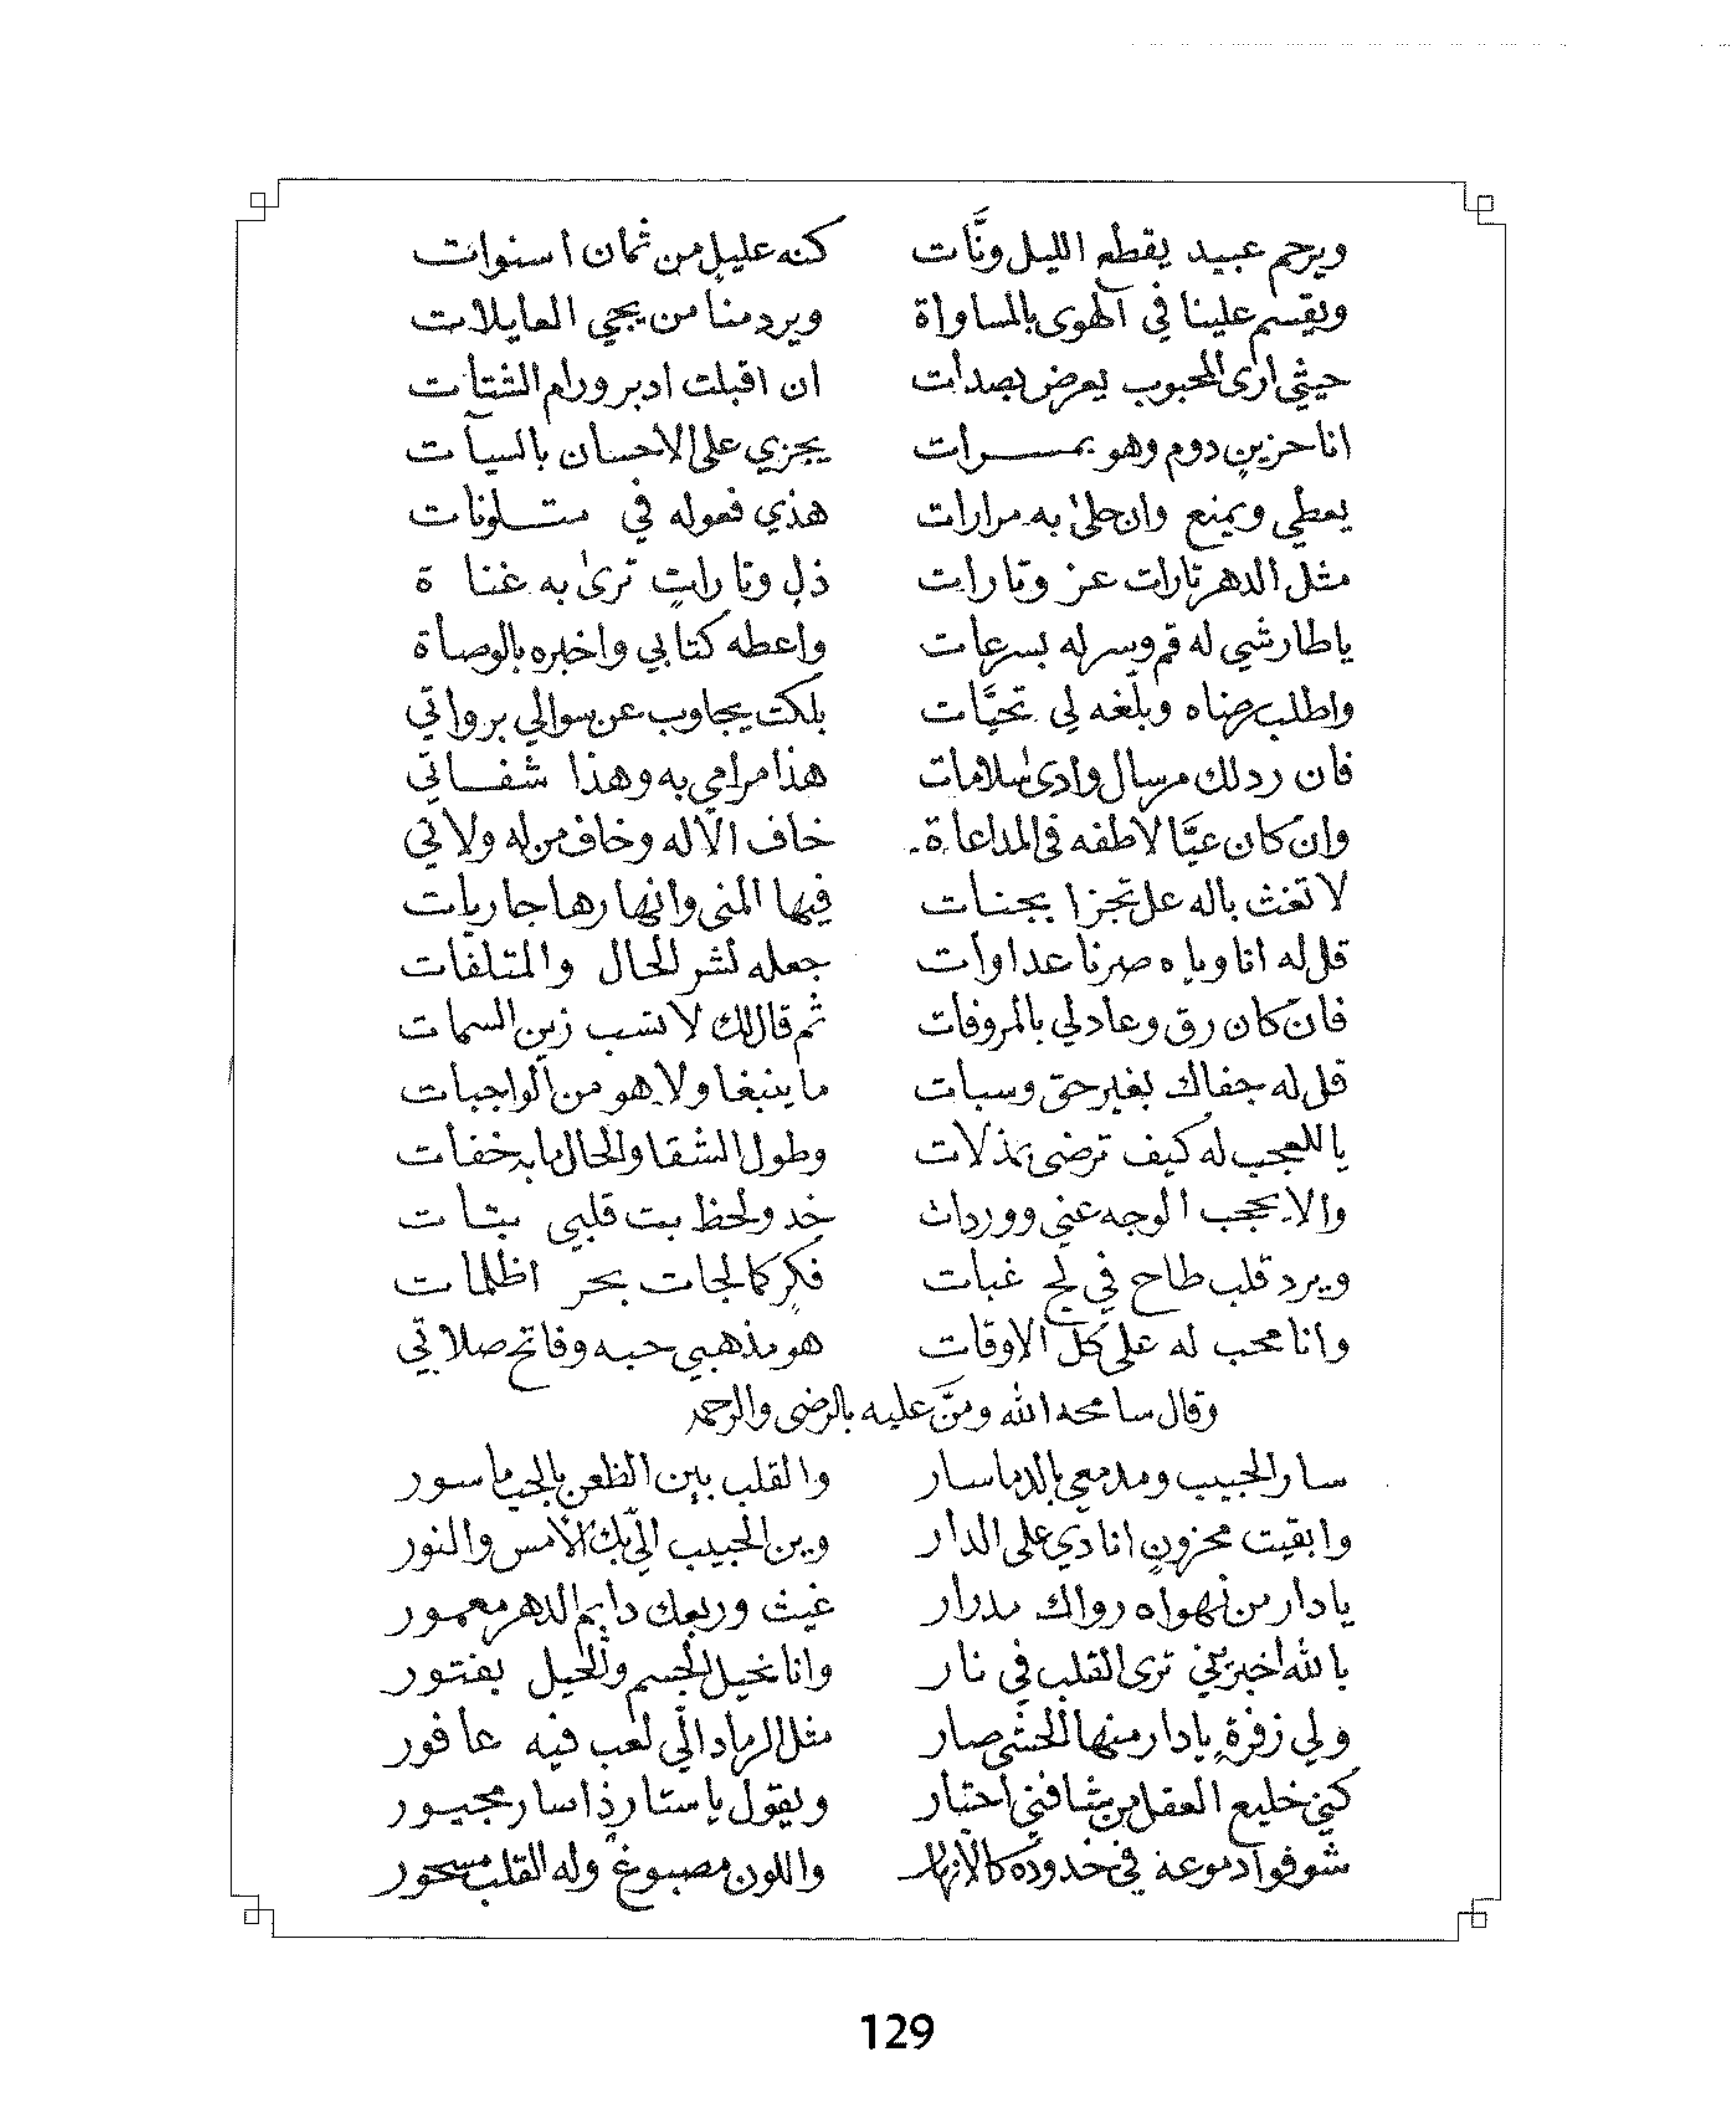 ويرحم عبيد يقطع الليل ونَّات كنه عليلٍ من ثمان اسنوات
ويقسم علينا في الهوى بالمساواة ويرد منا من يجي العايلات
حيثي ارى المحبوب يعرض بصدات ان اقبلت ادبر ورام الشتات
انا حزينٍ دوم وهو بمسرات يجزي على الاحسان بالسيات
يعطي ويمنع وان حلىٰ به مرارات هذي فعوله في متلونات
مثل الدهر تارات عز وتارات ذلٍ وتاراتٍ ترىٰ به غناة
ياطارشي له قم وسر له بسرعات واعطه كتابي واخبره بالوصاة
واطلب رضاه وبلّغه لي تحيَّات بلكت يجاوب عن سوالي برواتي
فان رد لك مرسال وادىٰ سلامات هذا مرامي به وهذا شفاتي
وان كان عيَّا لاطفه في المداعاة خاف الاله وخاف من له ولاتي
لا تغث باله عل تجزا بجنات فيها المنى وانهارها جاريات
قل له انا وياه صرنا عداوات جعله لشر الحال والمتلفات
فان كان رق وعاد لي بالمروفات ثم قال لك لا تسب زين السمات
قل له جفاك بغير حق وسبات ما ينبغا ولا هو من الواجبات
يا للعجب له كيف ترضى بمذلات وطول الشقا والحال ما به خفات
والا يحجب الوجه عني ووردات خد ولحظ بت قلبي بتات
ويرد قلب طاح في لج غبات فكرٍ كالجات بحر اظلمات
وانا محب له على كل الاوقات هو مذهبي حبه وفاتح صلاتي
وقال سامحه الله ومنَّ عليه بالرضى والرحمه
سار الحبيب ومدمعي بالدما سار والقلب بين الظعن بالحب ماسور
وابقيت محزونٍ انادي على الدار وين الحبيب الّي بك الامس والنور
يادار من نهواه رواك مدرار غيث وربعك دايم الدهر معمور
بالله اخبريني ترى القلب في نار وانا نحيل الجسم والحيل بفتور
ولي زفرةٍ يادار منها الحشى صار مثل الرماد الّي لعب فيه عافور
كني خليع العقل من شافني احتار ويقول ياستار ذا سار مجبور
شوفوا دموعه في خدوده كالانهار واللون مصبوغ وله القلب مسحور
129